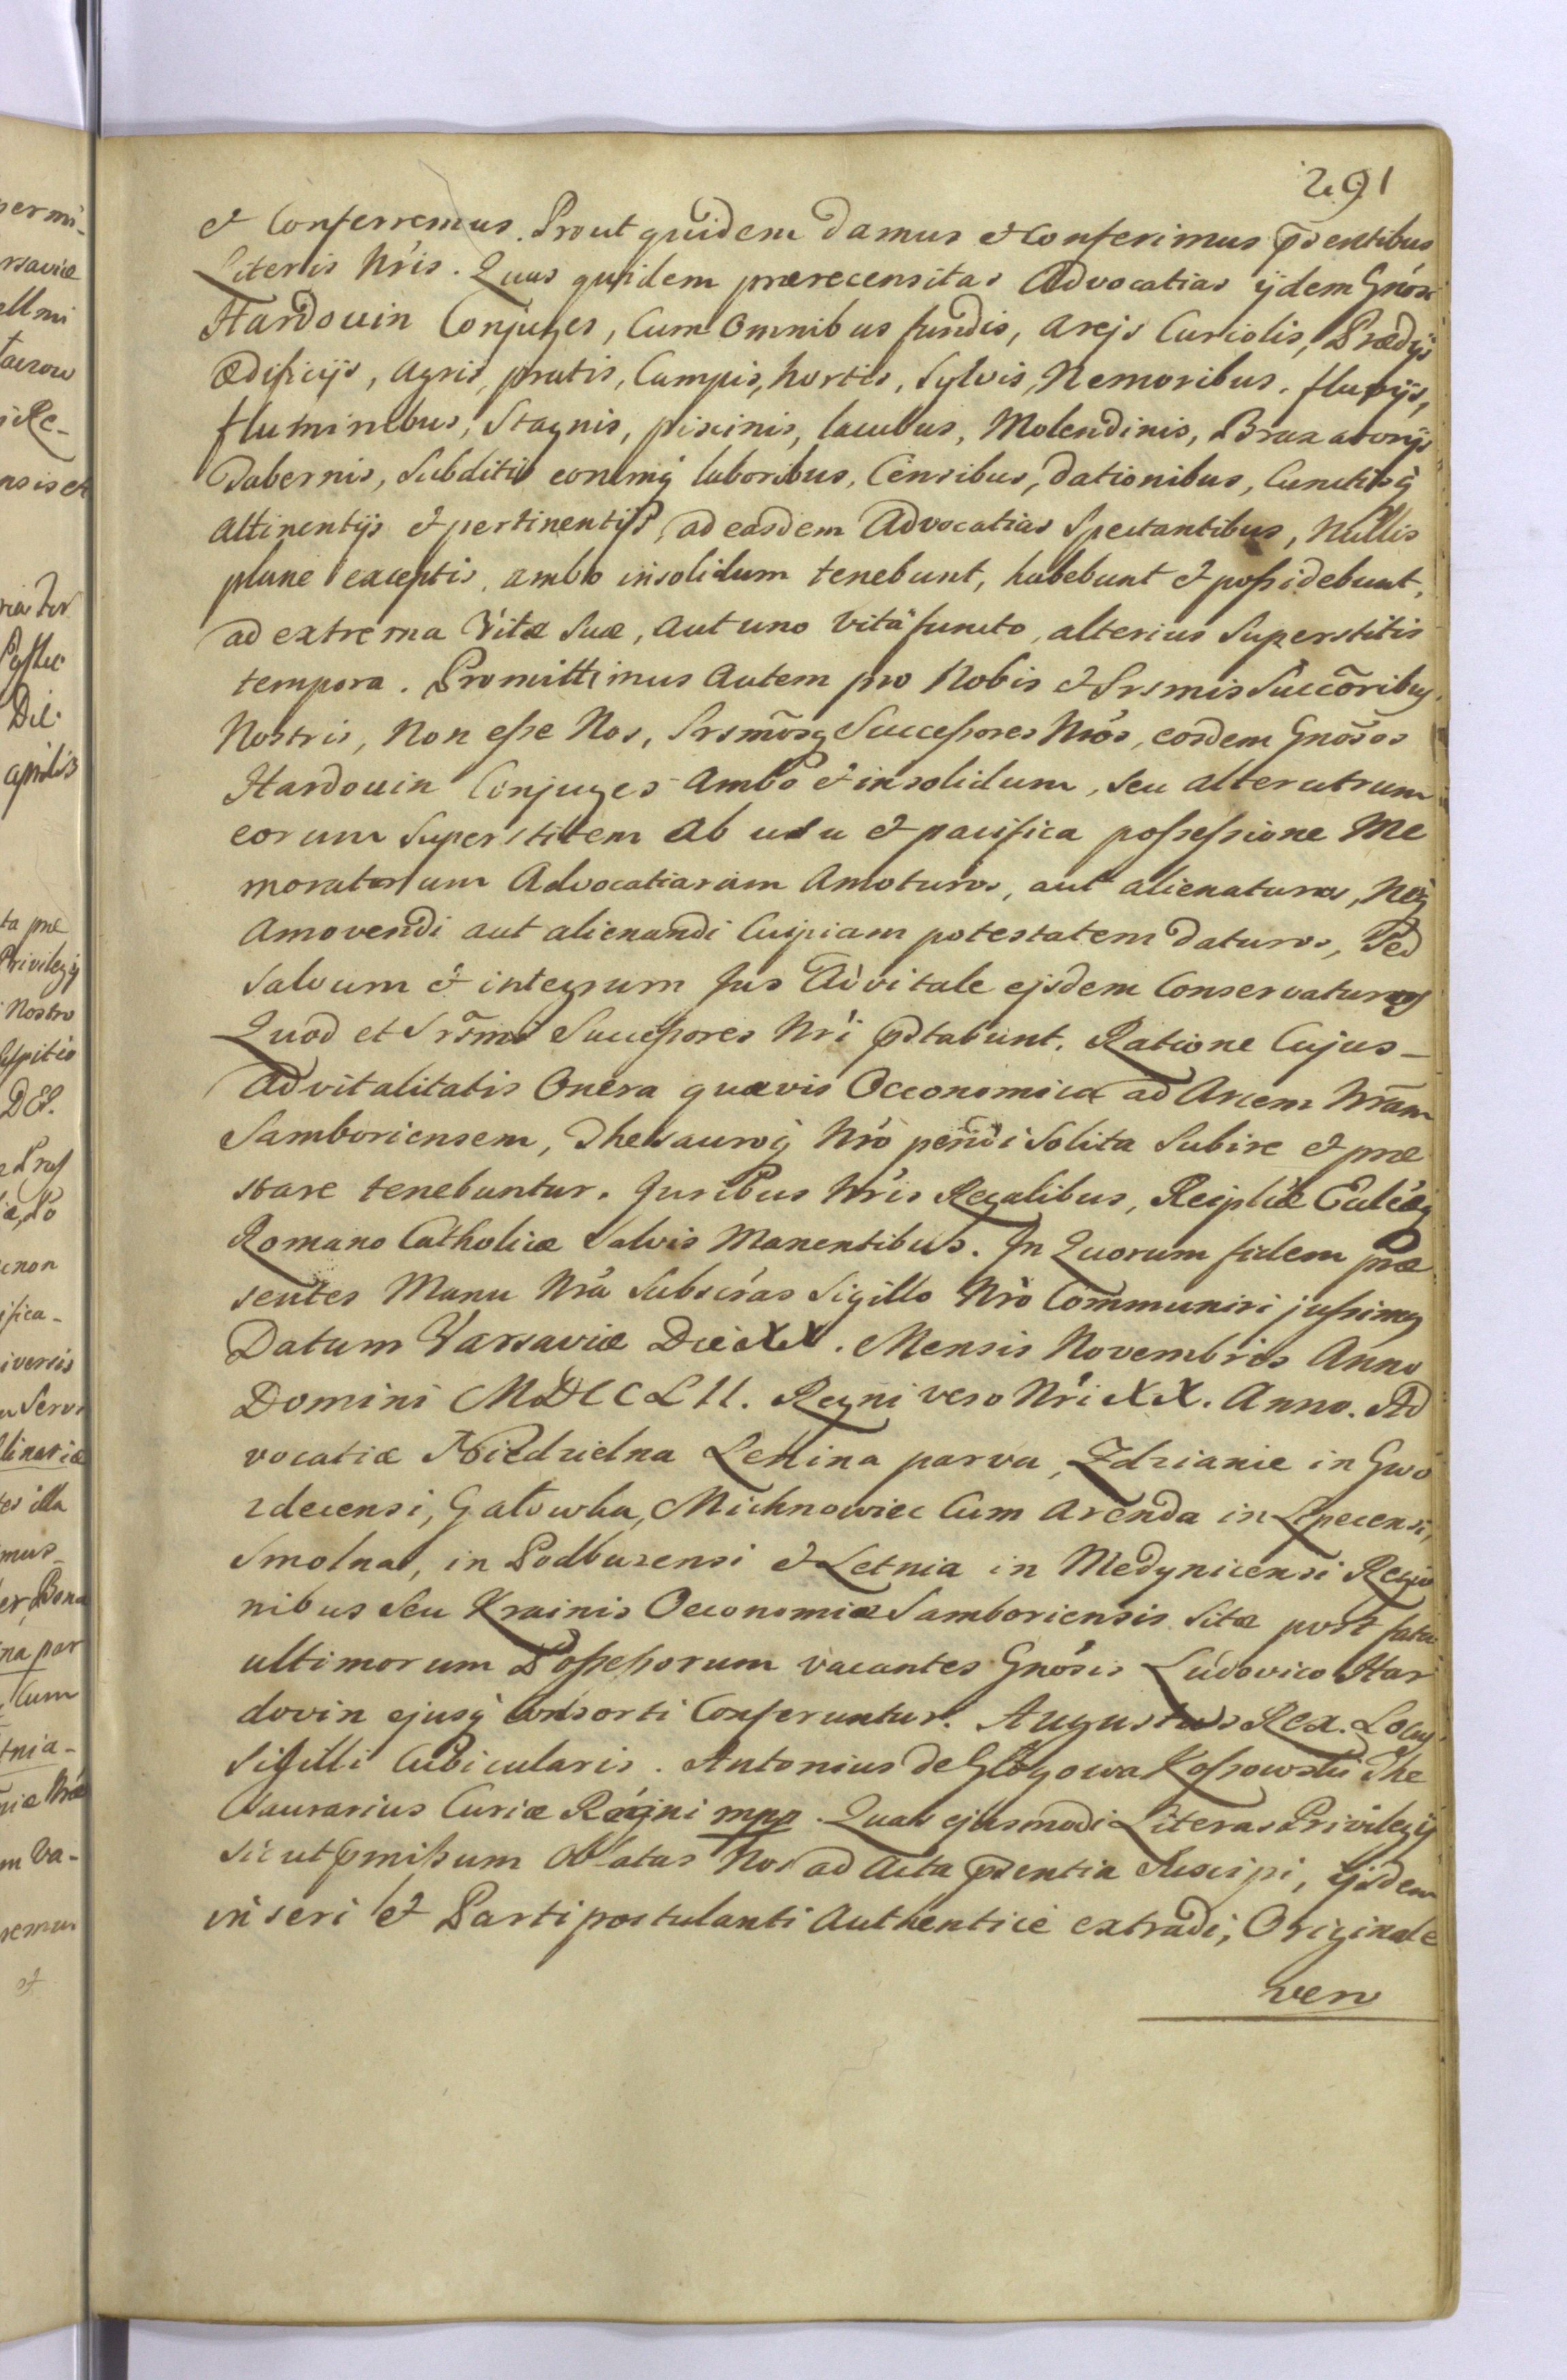 291
et Conferremus. Prout quidem damus et Conferimus pñsentibus
Literis Nris. Quas quidem prærecensitas Advocatias ijdem Gnõsi
Hardouin Conjuges, Cum Omnibus fundis, arejs Curiolis, Prædijs
ædificijs, agris, pratis, Campis, hortis, Sylvis, Nemoribus, fluvijs,
fluminibus, Stagnis, piscinis, lacubus, Molendinis, Braxatorijs
Tabernis, Subditis eorumq̃ laboribus, Censibus, dationibus, Cunctisq̃
attinentijs et pertinentijs, ad easdem Advocatias Spectantibus, Nullis
plane exceptis, ambo insolidum tenebunt, habebunt et poßidebunt,
ad extrema Vitæ Suæ, aut uno vitâ functo, alterius Superstitis
tempora. Promittimus Autem pro Nobis et Srsmis Succõribus
Nostris, Non eße Nos, Srsmõsq Succeßores Nros, eosdem Gnõsos
Hardouin Conjuges Ambo et insolidum, seu alterutrum
eorum Superstitem ab usu et pacifica poßeßione Me
moratarum Advocatiarum Amoturos, aut alienaturos, Neq̃
Amovendi aut alienandi Cuipiam potestatem daturos, Sed
Salvum et integrum Jus Advitale ejsdem Conservaturos
Quod et Srsmi Succeßores Nri pstabunt. Ratione Cujus
Advitalitatis Onera quævis Oeconomica ad Arcem Nram
Samboriensem, Thesauroq̃ Nro pendi Solita Subire et præ
stare tenebuntur. Juribus Nris Regalibus, Reipliæ Ecclæq̃
Romano Catholicæ Salvis Manentibus. In Quorum fidem præ
sentes Manu Nra Subscrãs Sigillo Nro Communiri jußimus
Datum Varsaviæ Die XX. Mensis Novembris Anno
Domini MDCCLII. Regni vero Nri XX. Anno. Ad
vocatiæ Niedzielna Lenina parva, Zdzianie in Gwo
zdecensi, Gałowka, Michnowiec Cum Arenda in Lipecensi,
Smolna, in Podbuzensi et Letnia in Medynicensi Regio
nibus Seu Krainis Oeconomiæ Samboriensis Sitæ post fata
ultimorum Poßeßorum vacantes Gnõsis Ludovico Har
dovin ejusq̃ Consorti Conferuntur. Augustus Rex. Locus
Sigilli Cubicularis. Antonius de Głogowa Koßowski The
saurarius Curiæ Regni mpp. Quas ejusmodi Literas Privilegij
Sic ut pmißum Oblatas Nos ad Acta pñsentia Suscipi, ijsdem
inseri et Parti postulanti Authentice extradi, Originale
vero